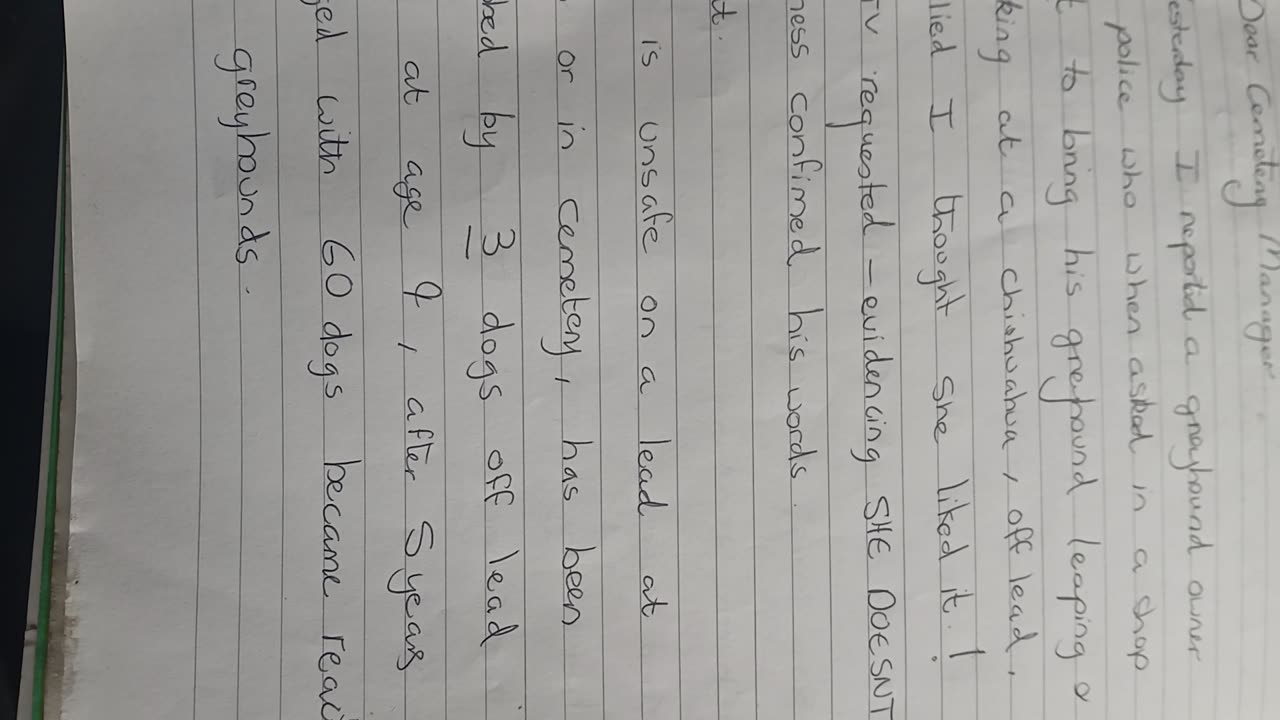 Dear Cemetery Manager
esterday I reported a greyhound owner
police who when asked in a shop
t to bring his greyhound leaping &
king at a chiohuahua, off lead,
lied I thought she liked it!
TV requested - evidencing SHE DOESNT
ness confimed his words.
t.
is unsafe on a lead at
or in cemetery, has been
ked by 3 dogs off lead
at age 9, after 5 years
ged with 60 dogs became reac
greyhounds.